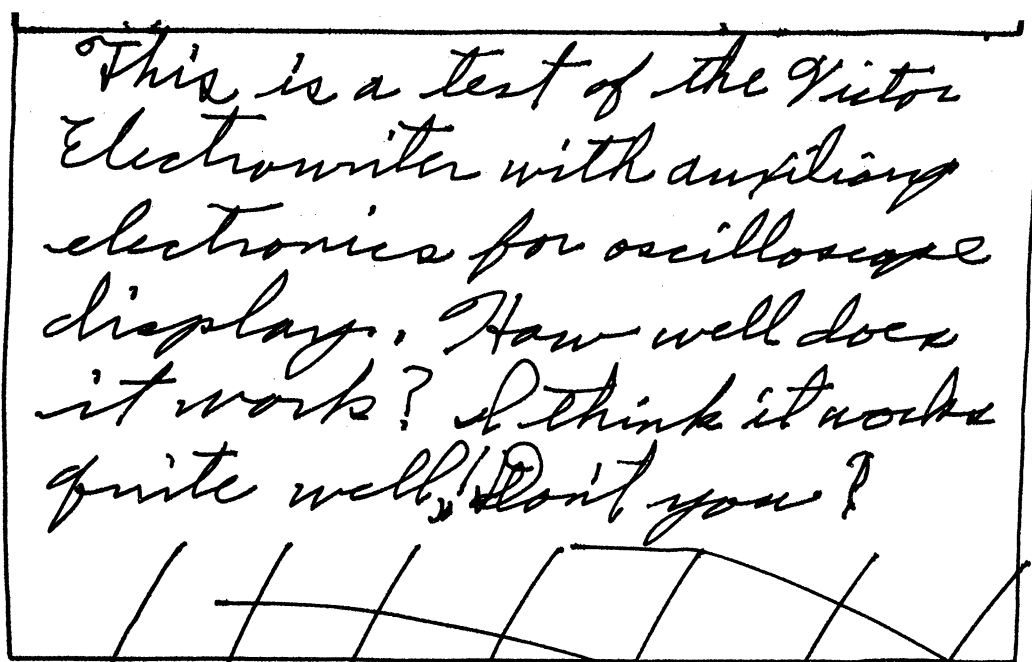 This is a test of the Victor
Electrowriter with auxiliary
electronics for oscilloscope
display. How well does
it work? I think it works
quite well,! Don't you?